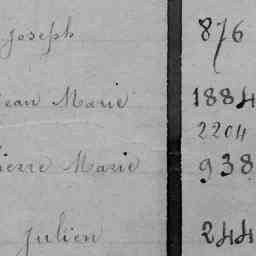 Joseph 876
Jean Marie 1884
2204
Pierre Marie 938
Julien 244